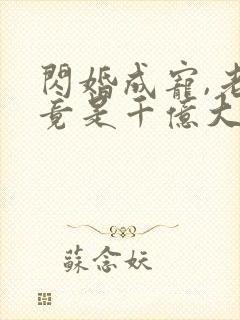 閃婚成寵,老
竟是千億大
蘇念妖